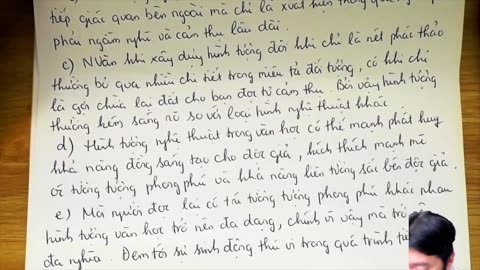 tiếp giác quan bên ngoài mà chỉ là xuất hiện thông qua
phải ngẫm nghĩ và cảm thụ lâu dài.
c) Nhằm khi xây dựng hình tượng đôi khi chỉ là nét phác thảo
thường bỏ qua nhiều chi tiết trong miêu tả đối tượng, có khi chỉ
là gợi chứa lại đất cho bạn đọc tự cảm thụ. Bởi vậy hình tượng
thường kém sáng rõ so với loại hình nghệ thuật khác.
d) Hình tượng nghệ thuật trong văn học có thế mạnh phát huy
khả năng đồng sáng tạo cho độc giả, kích thích mạnh mẽ
trí tưởng tượng phong phú và khả năng liên tưởng sâu sắc độc giả.
e) Mỗi người đọc lại có trí tưởng tượng phong phú khác nhau
hình tượng văn học trở nên đa dạng, chính vì vậy mà trở
đa nghĩa. Đem tới sự sinh động thú vị trong quá trình